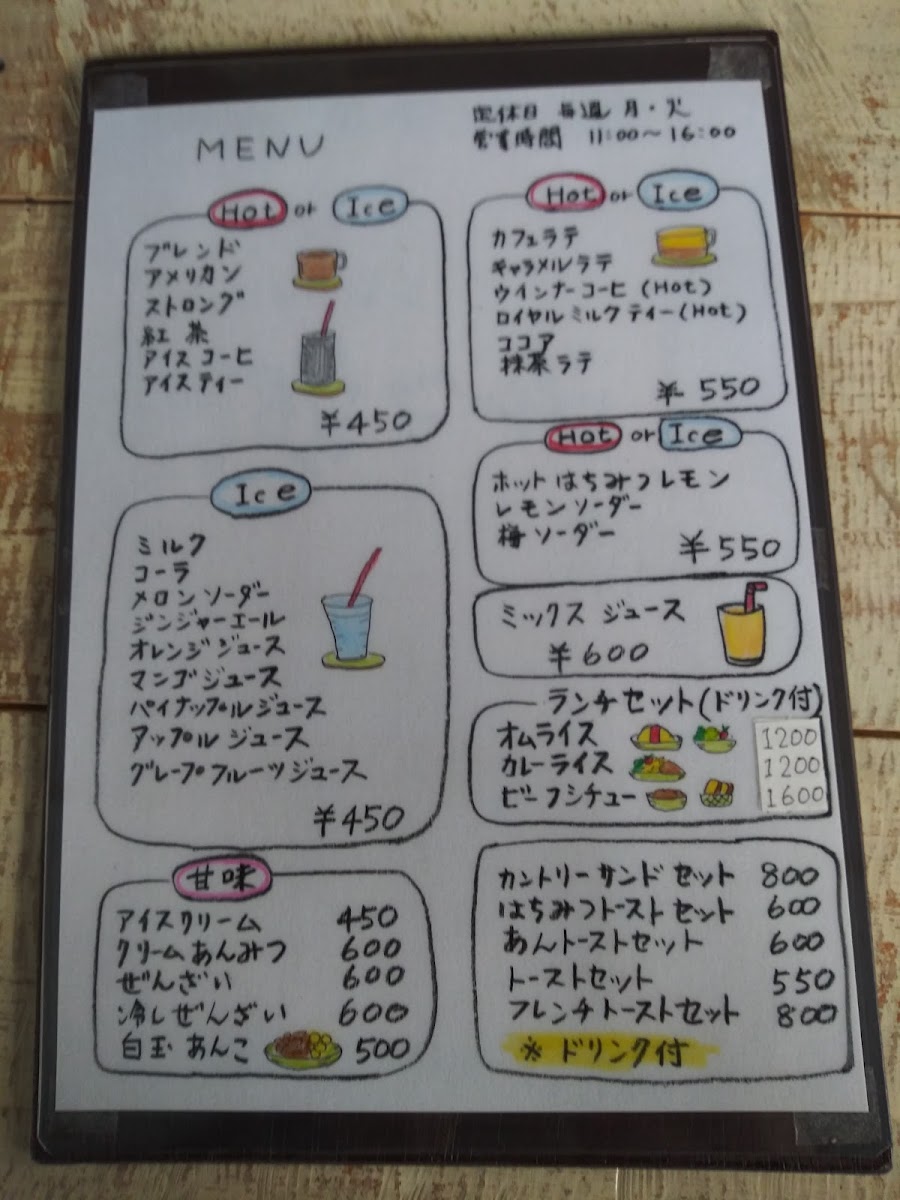 MENU
定休日 毎週 月・火
営業時間 11:00〜16:00
Hot or Ice
ブレンド
アメリカン
ストロング
紅茶
アイスコーヒ
アイスティー
¥450
Ice
ミルク
コーラ
メロンソーダー
ジンジャーエール
オレンジジュース
マンゴジュース
パイナップルジュース
アップルジュース
グレープフルーツジュース
¥450
甘味
アイスクリーム 450
クリームあんみつ 600
ぜんざい 600
冷しぜんざい 600
白玉あんこ 500
Hot or Ice
カフェラテ
キャラメルラテ
ウインナーコーヒ (Hot)
ロイヤルミルクティー(Hot)
ココア
抹茶ラテ
¥550
Hot or Ice
ホットはちみつレモン
レモンソーダー
梅ソーダー
¥550
ミックスジュース
¥600
ランチセット(ドリンク付)
オムライス 1200
カレーライス 1200
ビーフシチュー 1600
カントリーサンドセット 800
はちみつトーストセット 600
あんトーストセット 600
トーストセット 550
フレンチトーストセット 800
※ドリンク付